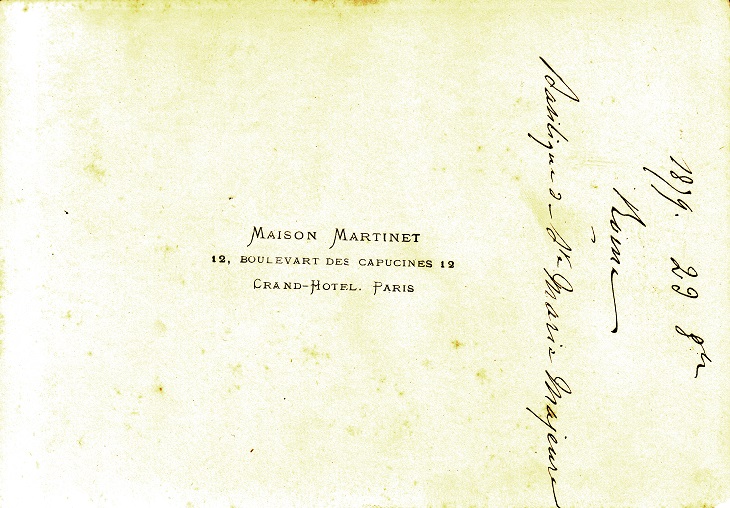 MAISON MARTINET
12, BOULEVART DES CAPUCINES 12
GRAND-HOTEL. PARIS
1879. 29 8bre
Rome
Basilique de Ste Marie Majeure